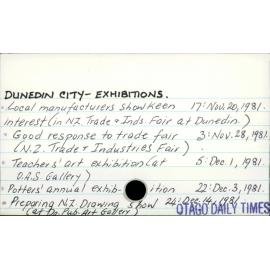 DUNEDIN CITY - EXHIBITIONS.
Local manufacturers show keen 17: Nov. 20, 1981.
interest (in N.Z. Trade & Inds. Fair at Dunedin.)
Good response to trade fair 3: Nov. 28, 1981.
(N.Z. Trade & Industries Fair)
Teachers' art exhibition (at 5: Dec. 1, 1981.
O.A.S. Gallery)
Potters' annual exhibition 22: Dec. 3, 1981.
Preparing N.Z. Drawing show 24: Dec. 14, 1981
(at Dn. Pub. Art Gallery)
OTAGO DAILY TIMES